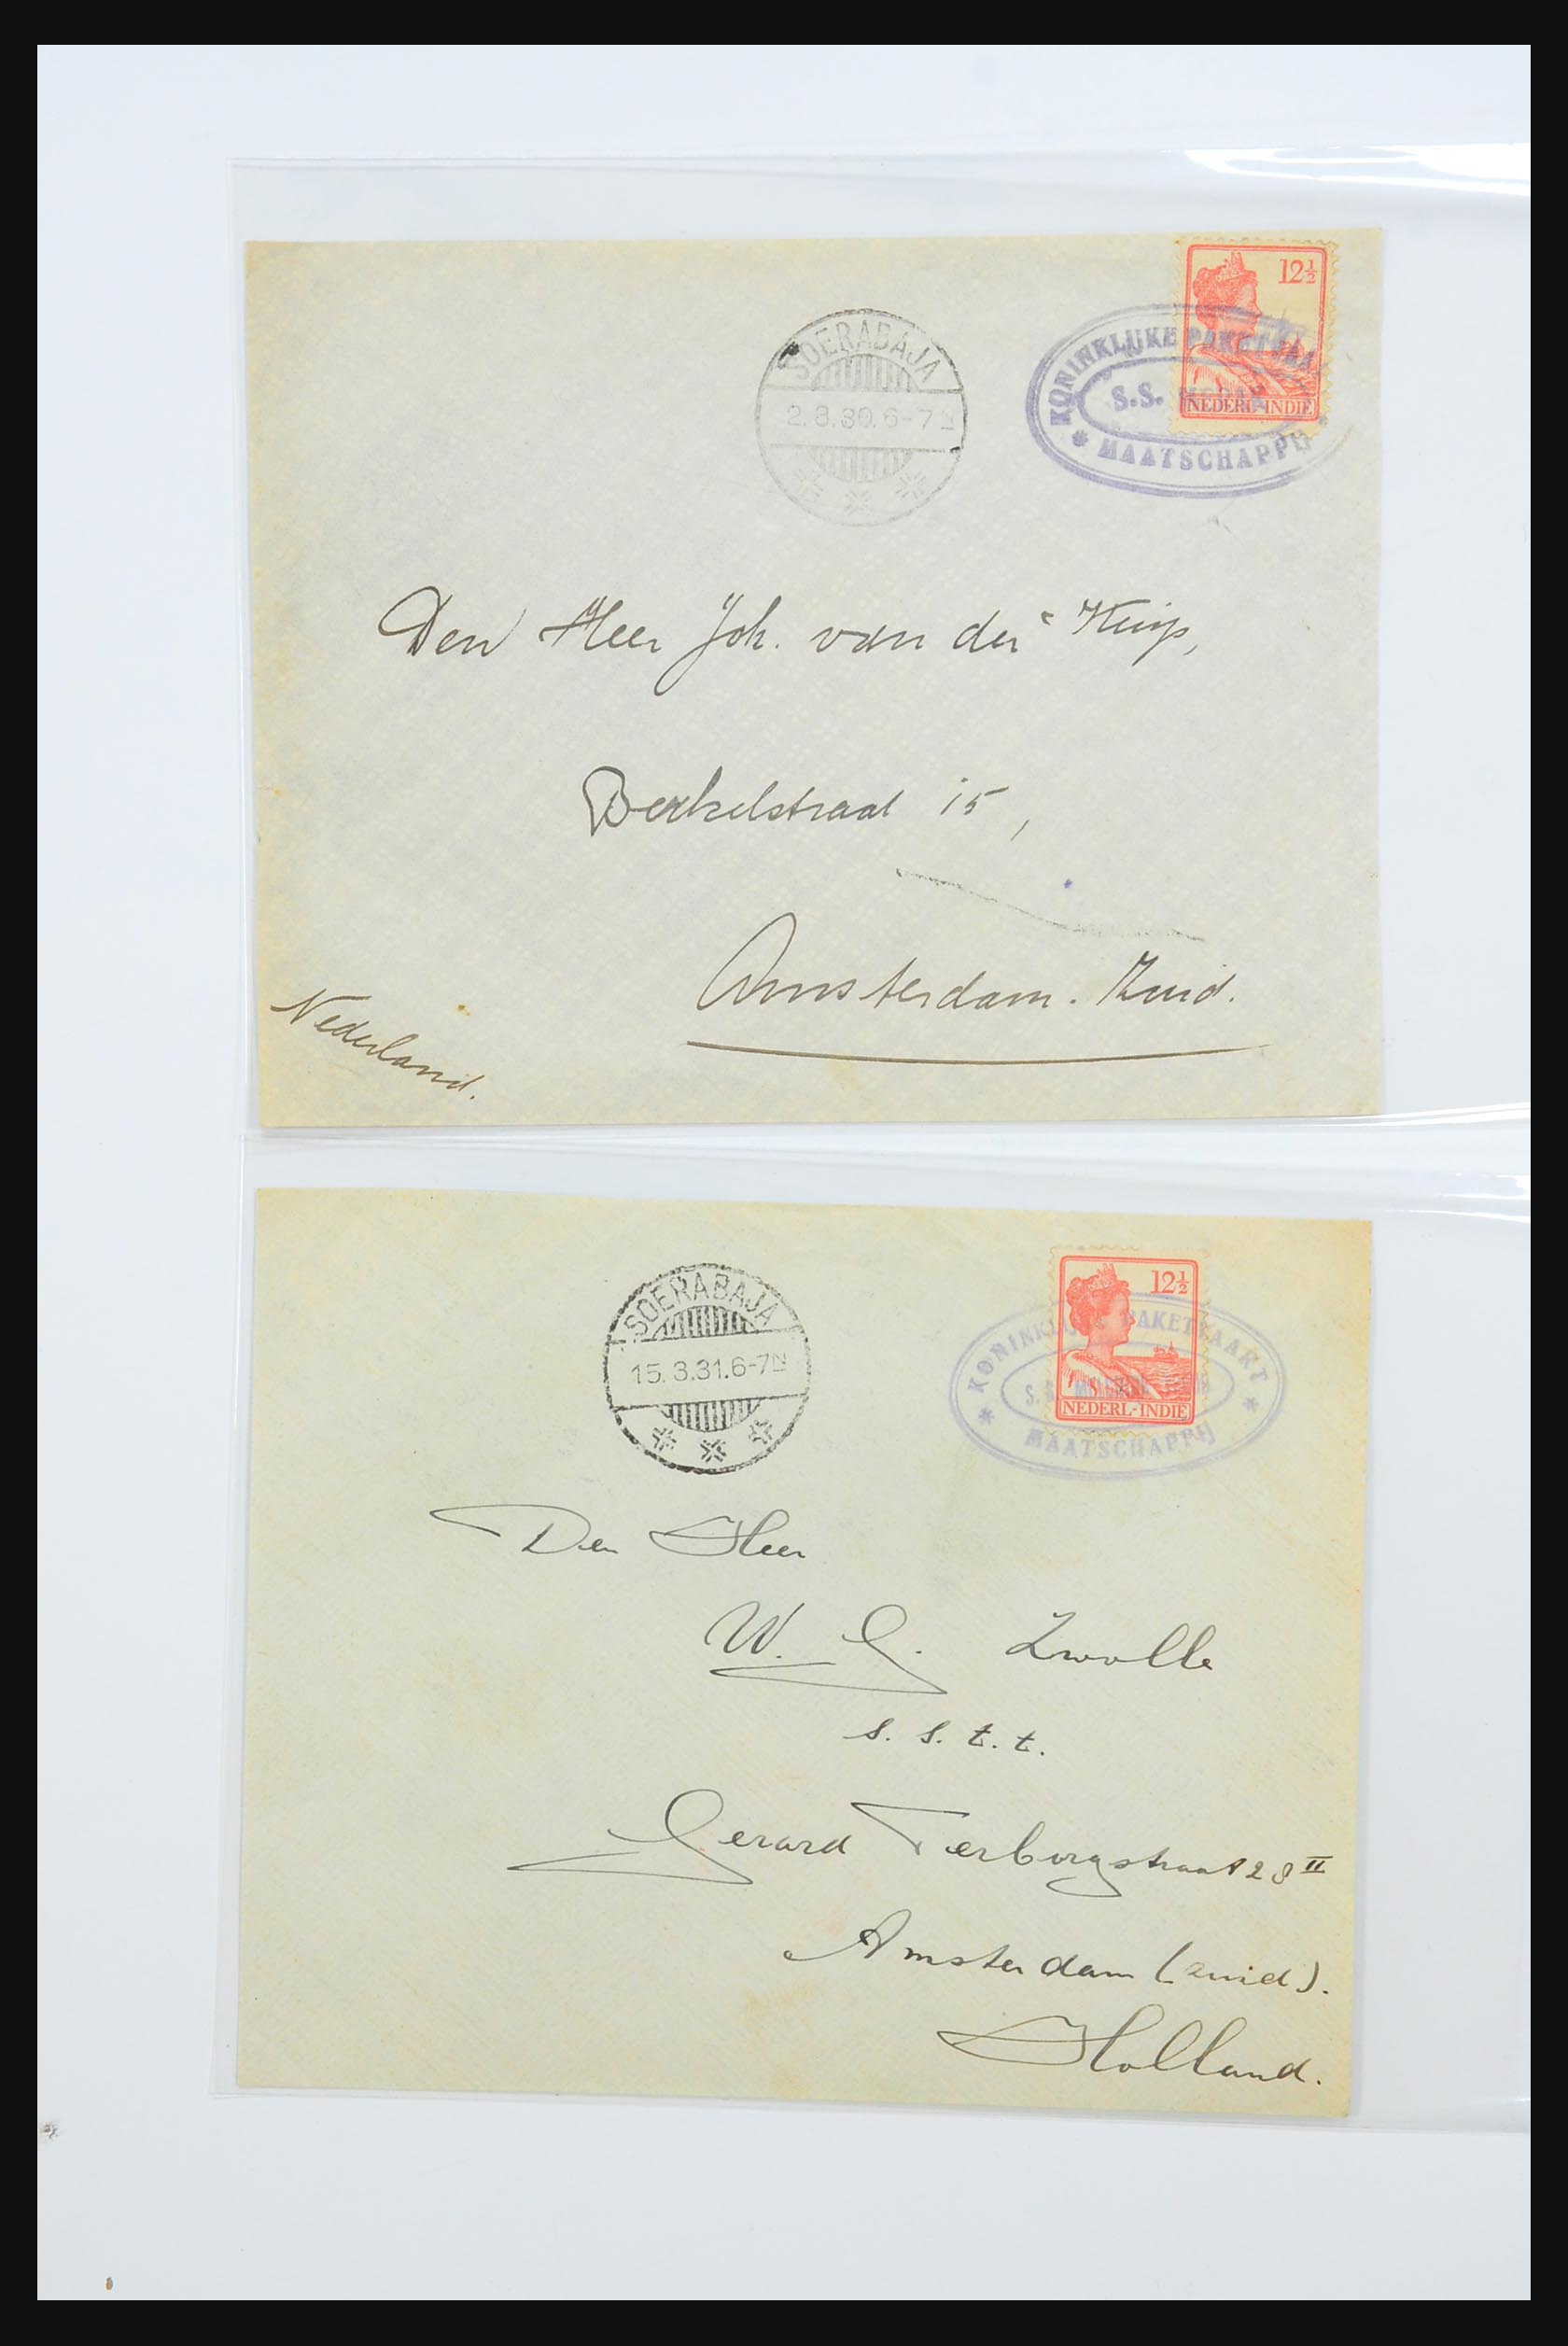 SOERABAJA
2.8.30.6-7N
12½
NEDERL-INDIE
KONINKLIJKE PAKETVAA
S.S.
MAATSCHAPPIJ
Den Heer Joh. van der Kuip,
Berkelstraat 15,
Amsterdam. Zuid.
Nederland.
SOERABAJA
15.3.31.6-7N
12½
NEDERL-INDIE
KONINKLIJKE PAKETVAART
S.S.
MAATSCHAPPIJ
Den Heer
W. G. Zwolle
s. s. t. t.
Gerard Terborgstraat 28 II
Amsterdam (zuid).
Holland.